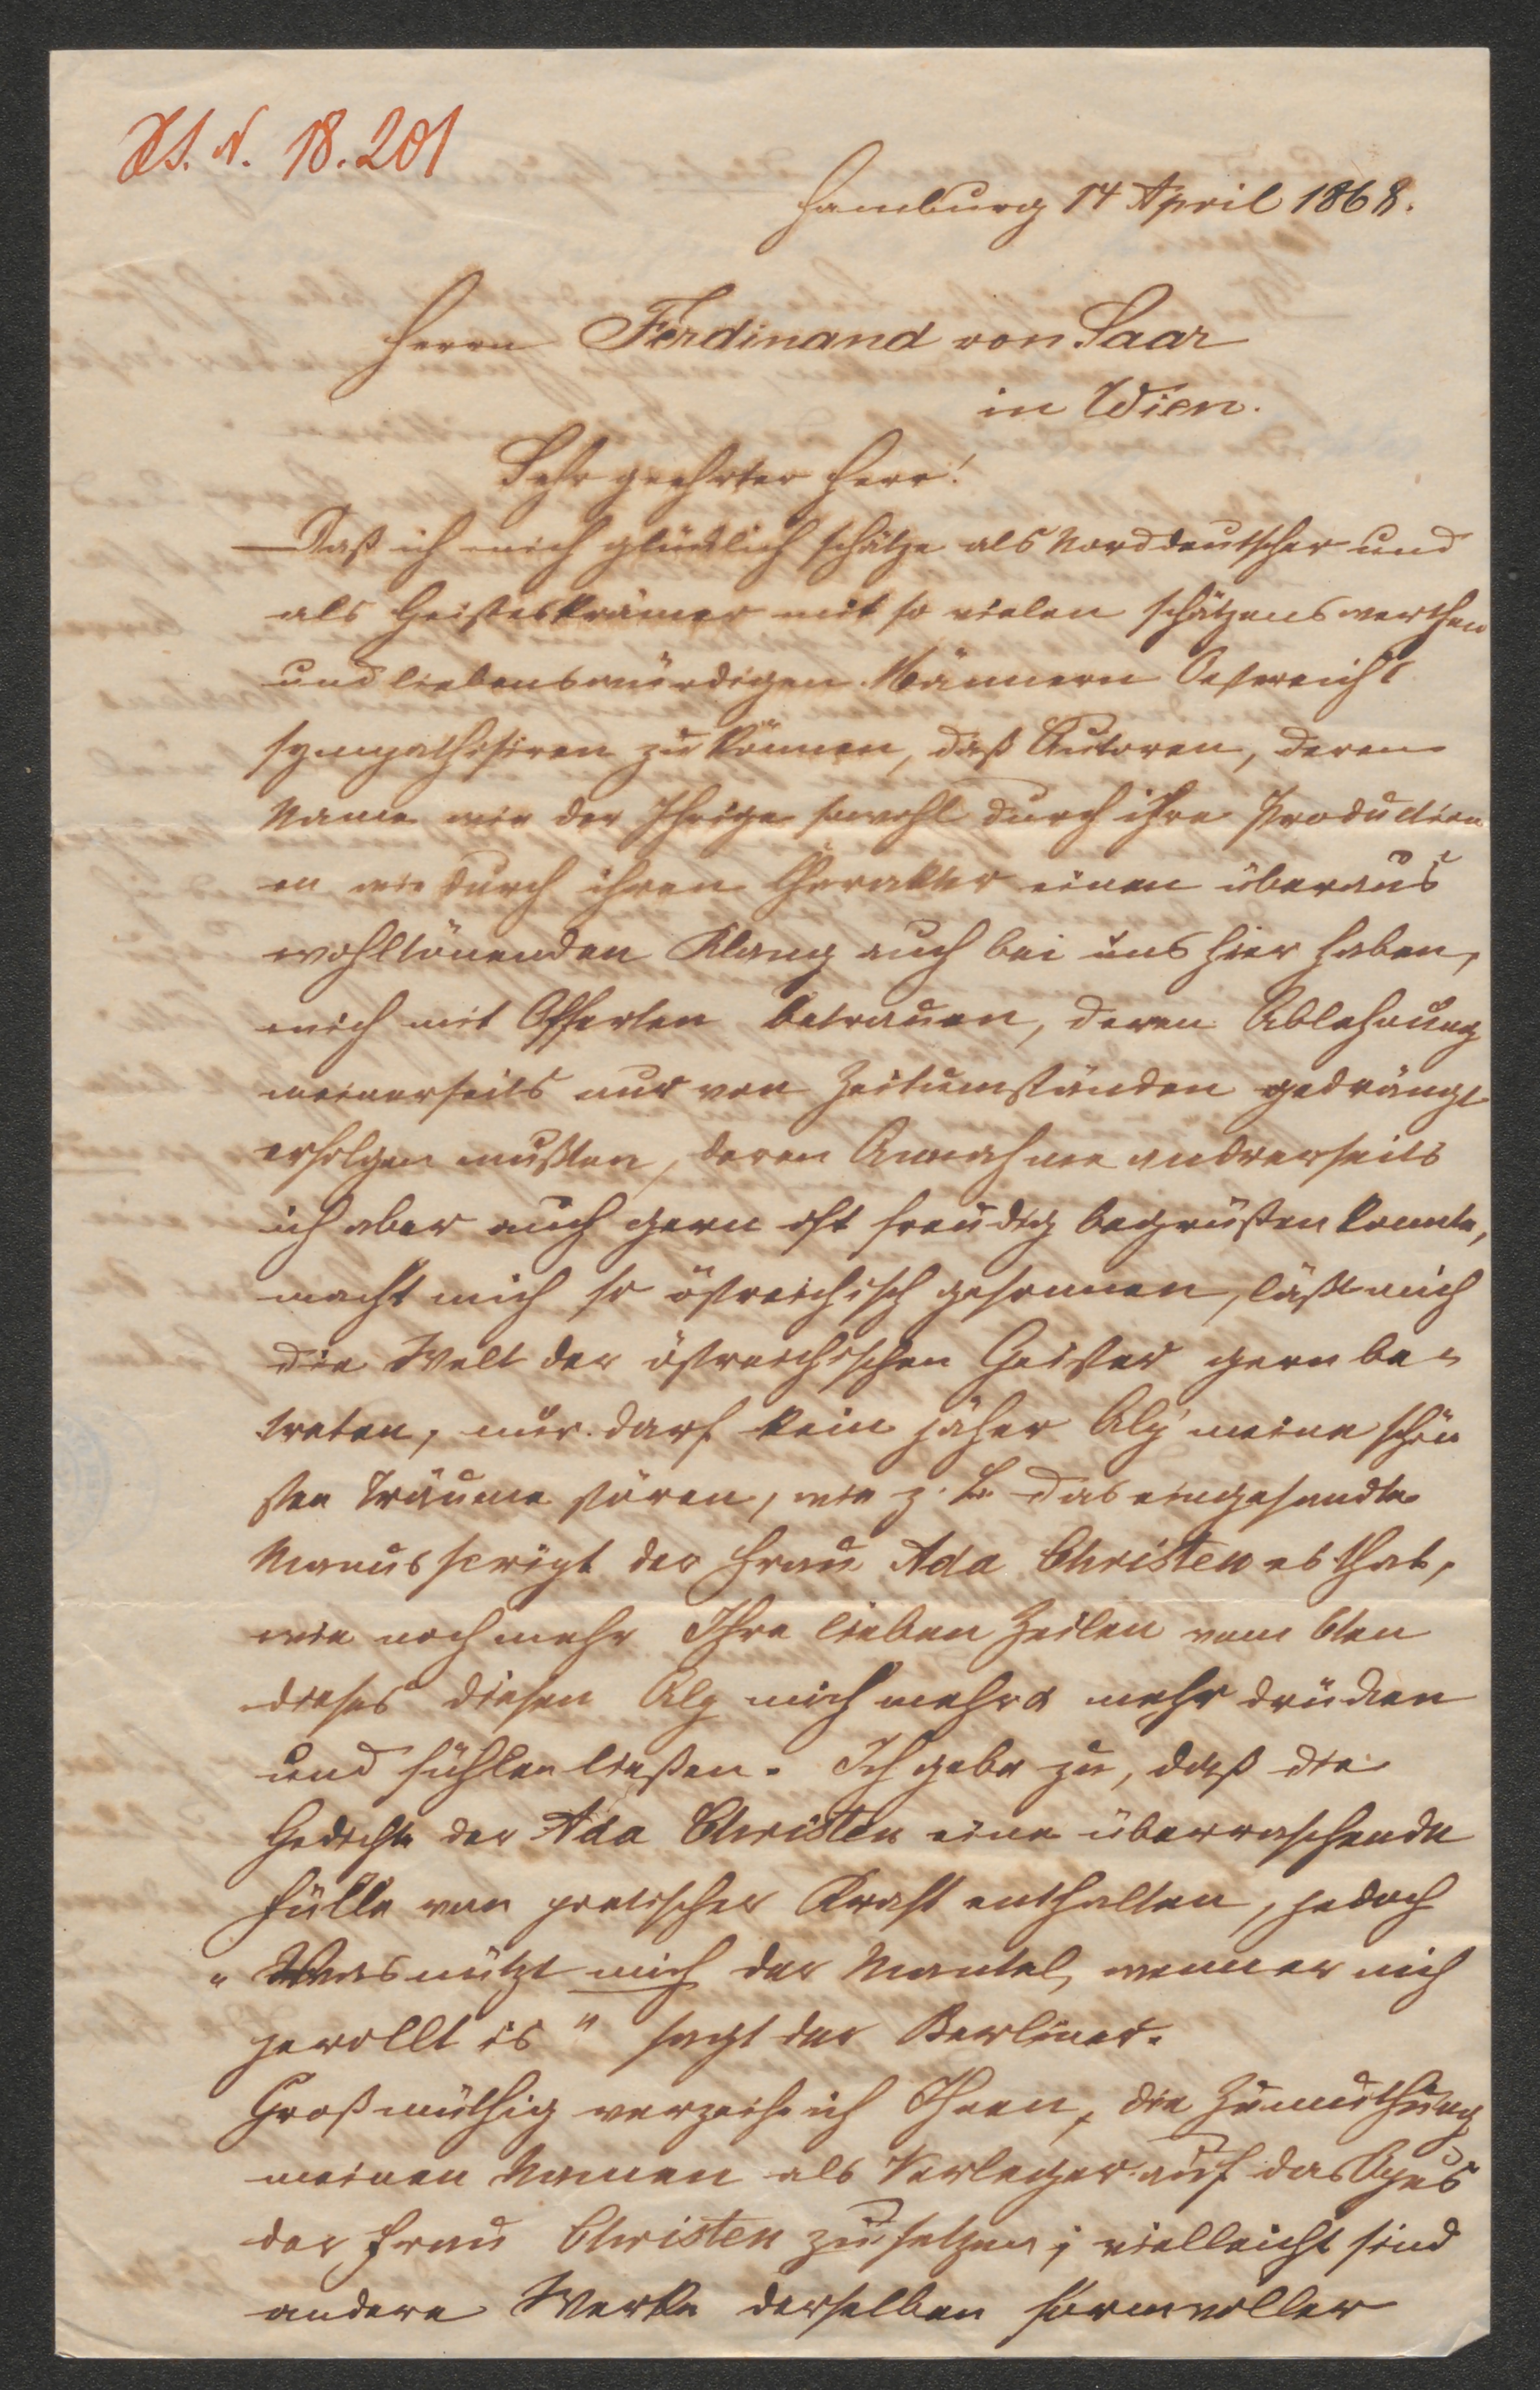 H.I.N. 18.201
Hamburg 14 April 1868.
Herrn Ferdinand von Saar
in Wien.
Sehr geehrter Herr!
Daß ich mich glücklich schätze als Norddeutscher und
als Geisteskrämer mit so vielen schätzenswerthen
und liebenswürdigen Männern Oestreichs
sympathisiren zu können, daß Autoren, deren
Name wie der Ihrige sowohl durch ihre Production
en wie durch ihren Charakter einen überaus
wohltönenden Klang auch bei uns hier haben,
mich mit Offerten betrauen, deren Ablehnung
meinerseits nur von Zeitumständen gedrängt
erfolgen mußten, deren Annahme andrerseits
ich aber auch gern oft freudig begrüßen konnte,
macht mich so östreichisch gesonnen, läßt mich
die Welt der östreichischen Geister gern be-
treten, nur darf kein jäher Alp meine schön
sten Träume stören, wie z. B. das eingesandte
Manusscript der Frau Ada Christen es that,
wie noch mehr Ihre lieben Zeilen vom 6ten
dieses diesen Alp mich mehr & mehr drücken
und fühlen ließen. Ich gebe zu, daß die
Gedichte der Ada Christen eine überraschende
Fülle von poetischer Kraft enthalten, jedoch
"Was nützt mich der Mantel, wenn er nich
gerollt is" sagt der Berliner.
Großmüthig verzeihe ich Ihnen, die Zumuthung
meinen Namen als Verleger auf das Opus
der Frau Christen zu setzen; vielleicht sind
andere Werke derselben formvoller